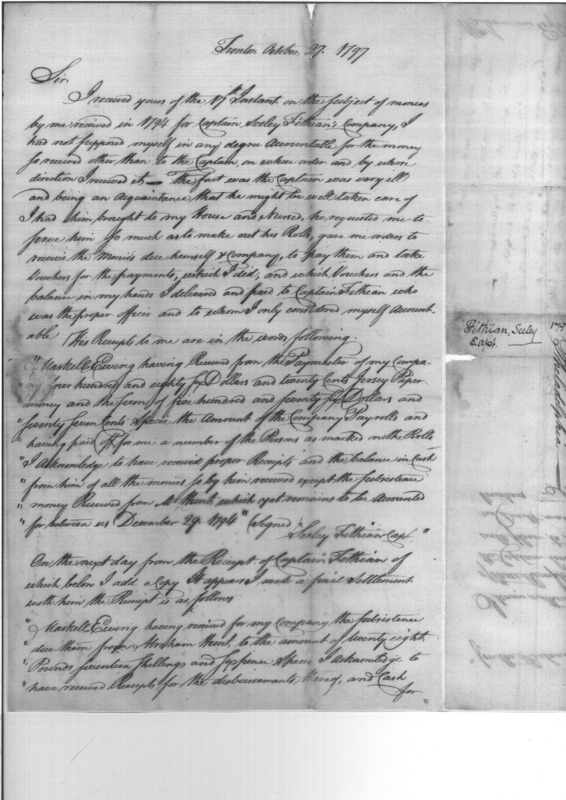 Trenton October 27. 1797
Sir
I received yours of the 17th Instant on the subject of monies
by me received in 1794 for Captain Seeley Fithian's Company, I
had not supposed myself in any degree Accountable for the money
so received other than to the Captain, on whose order and by whose
direction I received it — The fact was the Captain was very ill
and being an Acquaintance that he might be well taken care of
I had him brought to my House and Nursed, he requested me to
serve him so much as to make out his Rolls, gave me orders to
receive the Monies due himself & Company, to pay them and take
Vouchers for the payments, which I did, and which Vouchers and the
balance in my hands I delivered and paid to Captain Fithian who
was the proper officer and to whom I only considered myself Account-
able. His Receipts to me are in the words following.
"Maskell Ewing having Received from the Paymaster of my Compa-
"ny four hundred and eighty six Dollars and twenty Cents Jersey Paper
money and the sum of five hundred and seventy six Dollars and
"seventy seven Cents Specie the Amount of the Company Payrolls and
"having paid off for me a number of the Persons as marked on the Rolls
"I Acknowledge to have received proper Receipts and the balance in Cash
"from him of all the monies so by him received except the Subsistence
"money Received from Mr Hunt which yet remains to be Accounted
"for between us December 29. 1794" Signed
"Seeley Fithian Capt."
On the next day from the Receipt of Captain Fithian of
which below I add a Copy It appears I made a final Settlement
with him the Receipt is as follows
"Maskell Ewing having received for my Company the Subsistence
"due them from Abraham Hunt, to the amount of twenty eight
"Pounds seventeen Shillings and sixpence Specie I Acknowledge to
"have received Receipts for the disbursements thereof, and Cash
for
Fithian, Seeley
Capt.